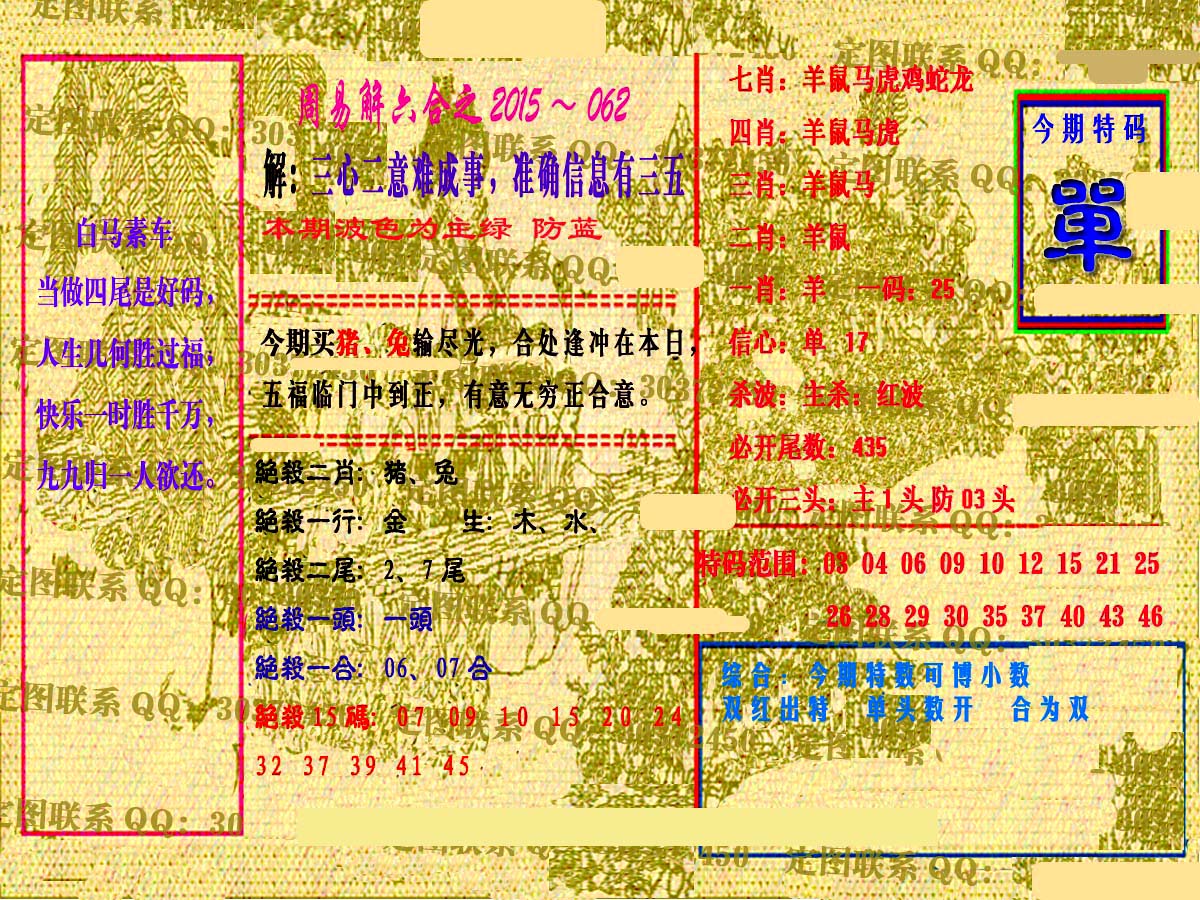 白马素车
当做四尾是好码，
人生几何胜过福，
快乐一时胜千万，
九九归一人欲还。
周易解六合之 2015 ～ 062
解：三心二意难成事，准确信息有三五
本期波色为主绿 防蓝
今期买猪、兔输尽光，合处逢冲在本日，
五福临门中到正，有意无穷正合意。
絕殺二肖：猪、兔
絕殺一行：金 生：木、水、
絕殺二尾：2、7 尾
絕殺一頭：一頭
絕殺一合：06、07 合
絕殺 15 碼：07 09 10 15 20 24
32 37 39 41 45
七肖：羊鼠马虎鸡蛇龙
四肖：羊鼠马虎
三肖：羊鼠马
二肖：羊鼠
一肖：羊 一码：25
信心：单 17
杀波：主杀：红波
必开尾数：435
必开三头：主 1 头 防 03 头
今期特码
單
特码范围：03 04 06 09 10 12 15 21 25
26 28 29 30 35 37 40 43 46
综合：今期特数可博小数
双红出特 单头数开 合为双
定图联系 QQ：